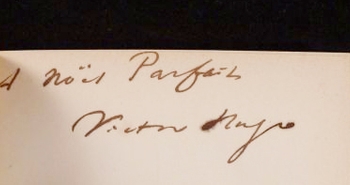 A Noël Parfait
Victor Hugo